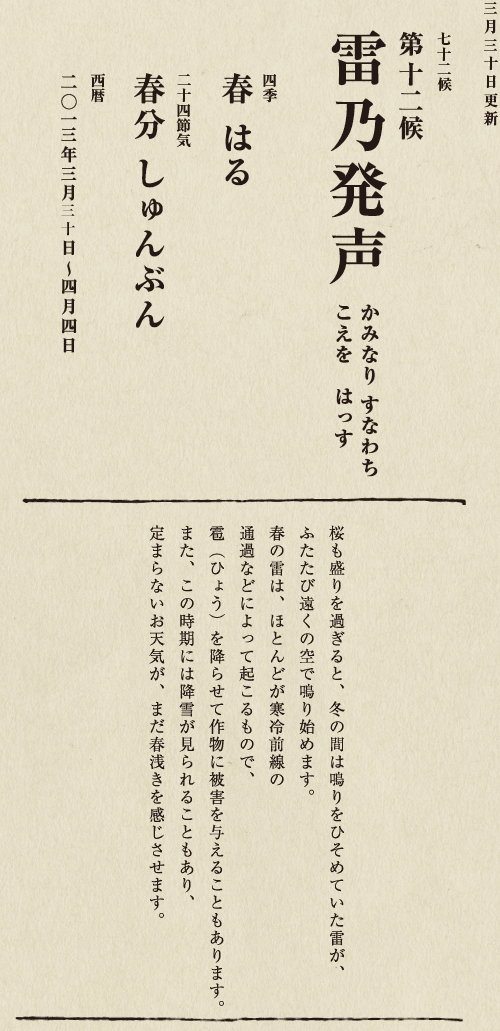 三月三十日更新
七十二候
第十二候
雷乃発声
かみなり すなわち
こえを はっす
四季
春 はる
二十四節気
春分 しゅんぶん
西暦
二〇一三年三月三十日〜四月四日
桜も盛りを過ぎると、冬の間は鳴りをひそめていた雷が、
ふたたび遠くの空で鳴り始めます。
春の雷は、ほとんどが寒冷前線の
通過などによって起こるもので、
雹（ひょう）を降らせて作物に被害を与えることもあります。
また、この時期には降雪が見られることもあり、
定まらないお天気が、まだ春浅きを感じさせます。